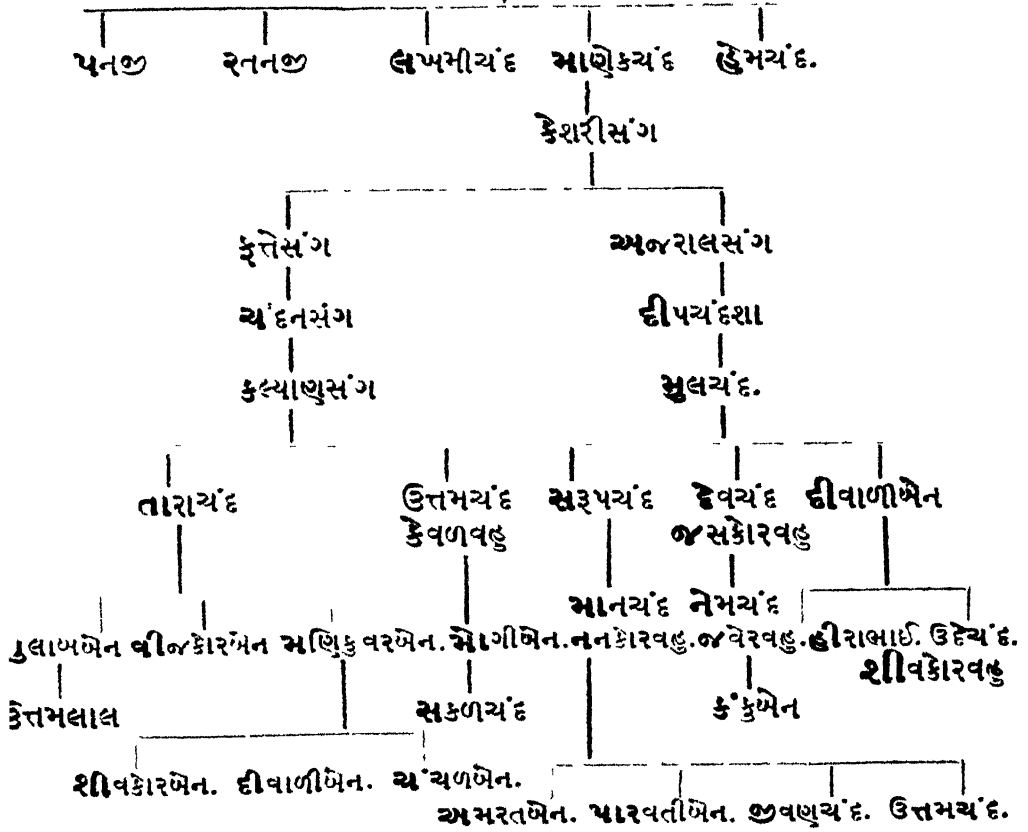 પનજી રતનજી લખમીચંદ માણેકચંદ હેમચંદ.
કેશરીસંગ
ફત્તેસંગ અજરાલસંગ
ચંદનસંગ દીપચંદશા
કલ્યાણસંગ મુલચંદ.
તારાચંદ ઉત્તમચંદ સરૂપચંદ દેવચંદ દીવાળીબેન
કેવળવહુ જસકોરવહુ
માનચંદ નેમચંદ
ગુલાબબેન વીજકોરબેન મણિકુવરબેન. મોગીબેન. નનકોરવહુ. જવેરવહુ. હીરાભાઈ. ઉદેચંદ.
શીવકોરવહુ
કેત્તમલાલ સકળચંદ કંકુબેન
શીવકોરબેન. દીવાળીબેન. ચંચળબેન.
અમરતબેન. પારવતીબેન. જીવણચંદ. ઉત્તમચંદ.